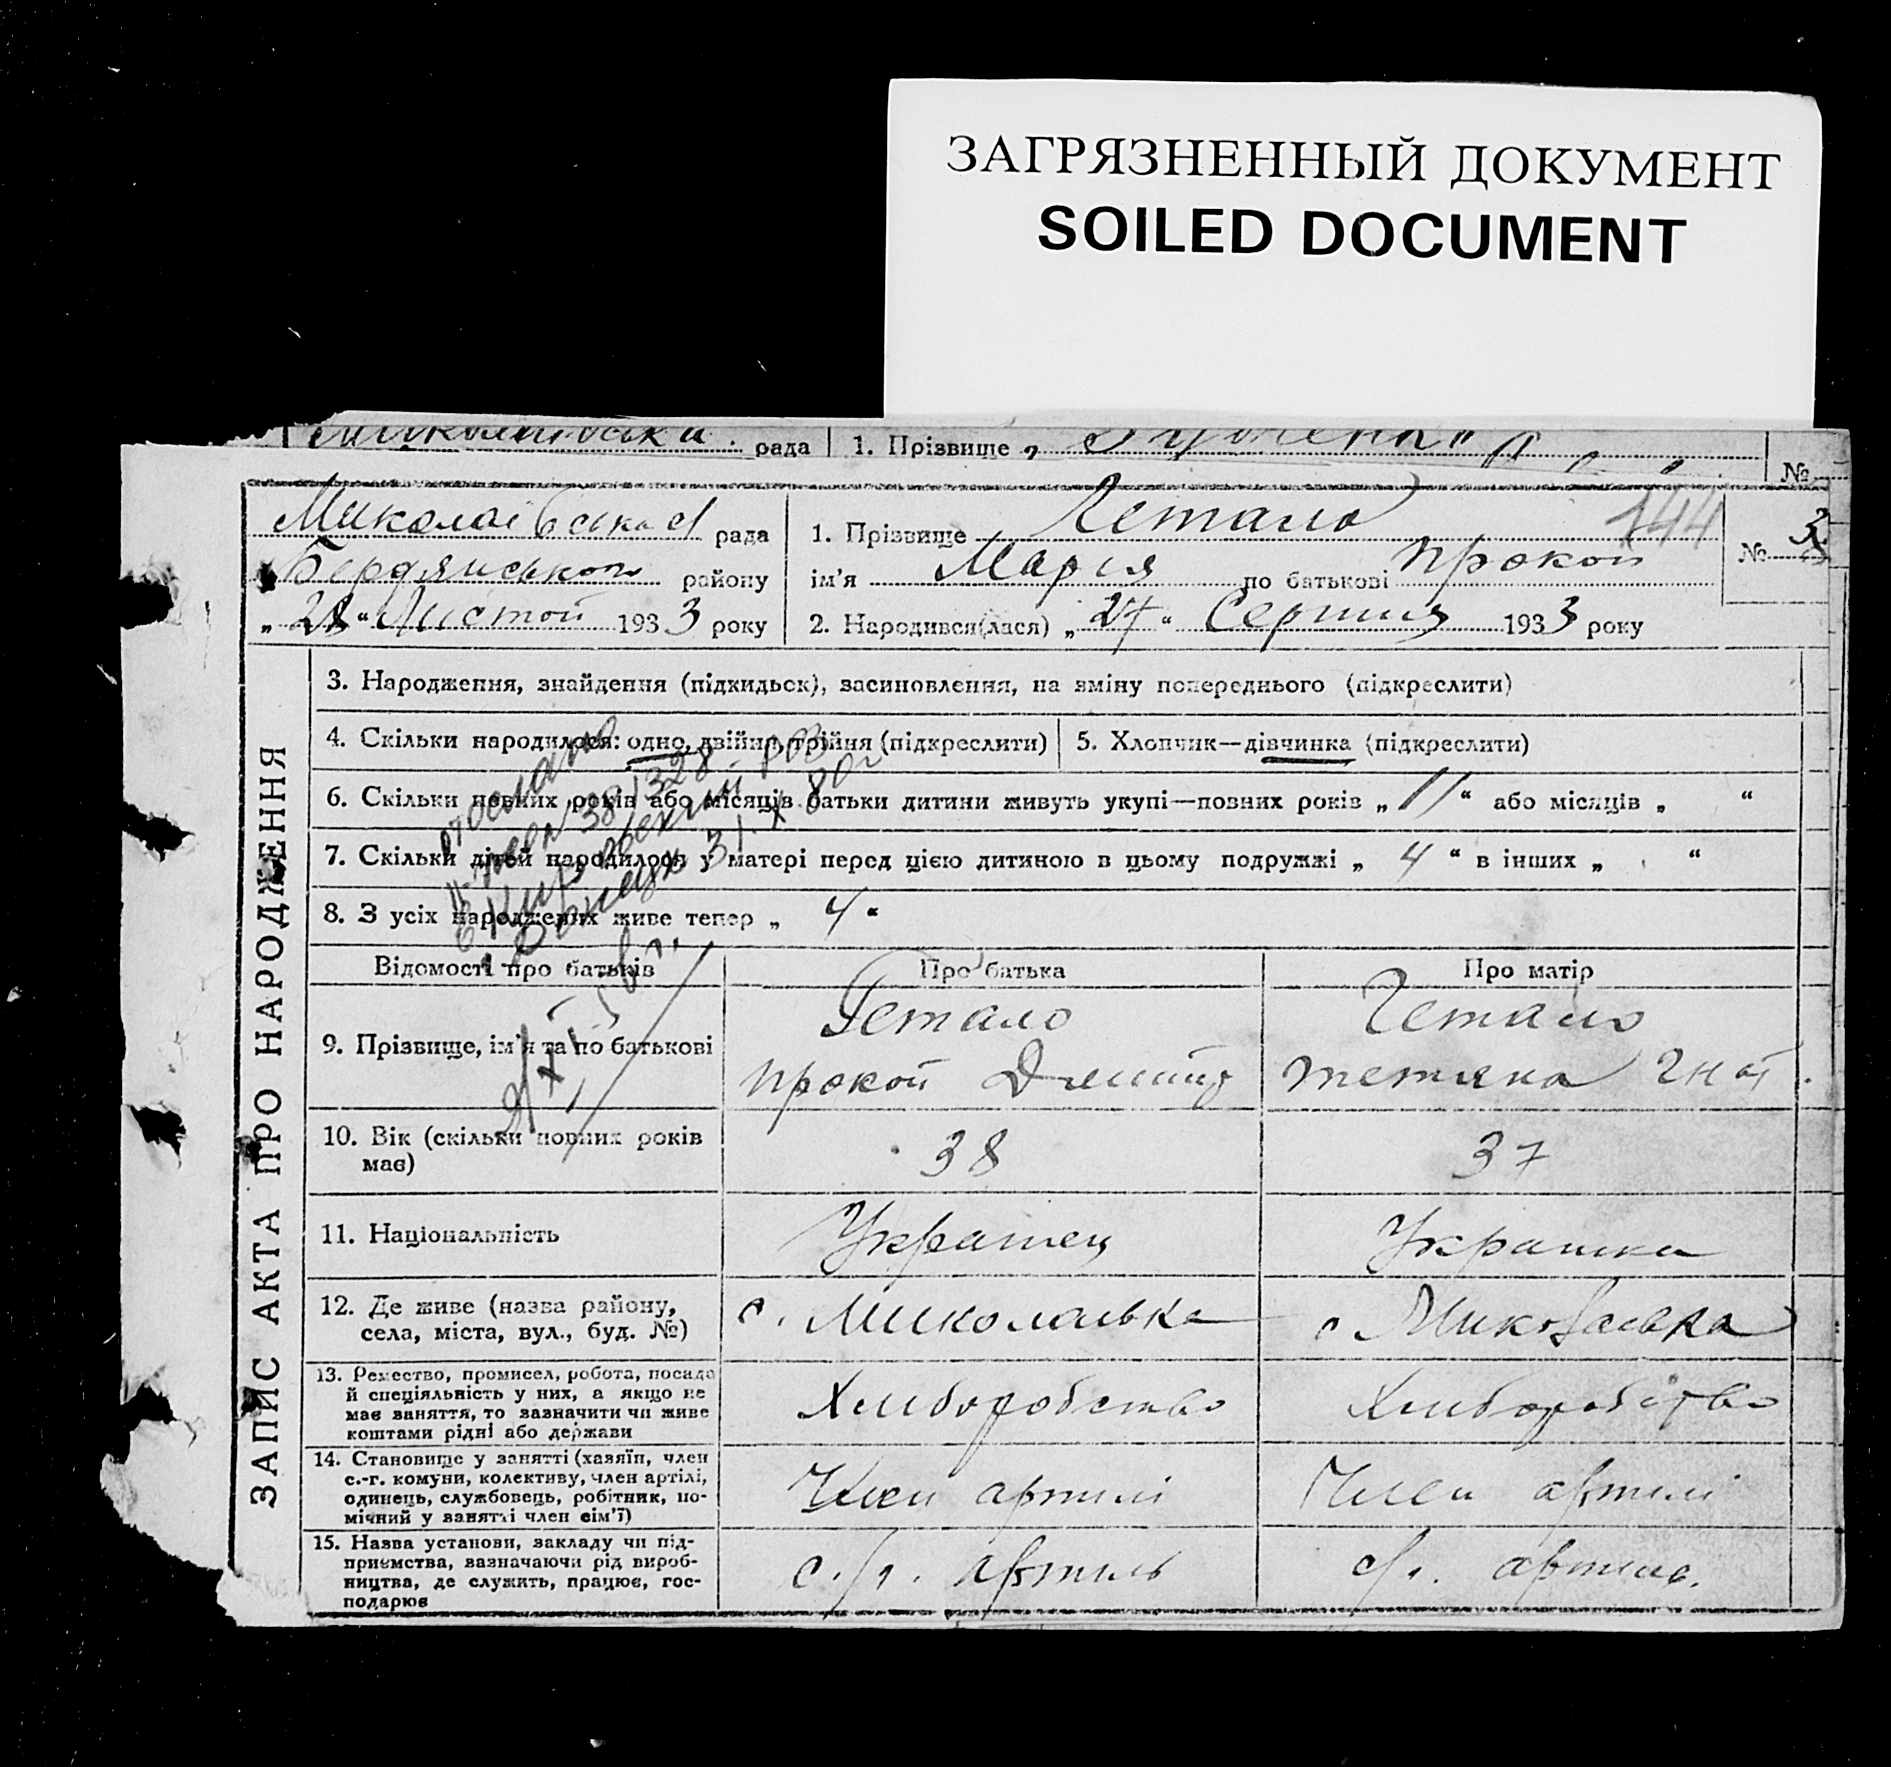 ЗАГРЯЗНЕННЫЙ ДОКУМЕНТ
SOILED DOCUMENT
рада 1. Прізвище №
Миколаївська рада 1. Прізвище Гетало 144
Бердянського району ім'я Марія по батькові Прокоп № 3
„28“ Листоп 1933 року 2. Народився(лася) „27“ Серпня 1933 року
ЗАПИС АКТА ПРО НАРОДЖЕННЯ
3. Народження, знайдення (підкидьок), засиновлення, на зміну попереднього (підкреслити)
4. Скільки народилося: одно, двійня, трійня (підкреслити) 5. Хлопчик—дівчинка (підкреслити)
6. Скільки повних років або місяців батьки дитини живуть укупі—повних років „11“ або місяців „ “
7. Скільки дітей народилося у матері перед цією дитиною в цьому подружжі „4“ в інших „ “
8. З усіх народжених живе тепер „4“
38/328
31.X 80г
Відомості про батьків Про батька Про матір
9. Прізвище, ім'я та по батькові
Гетало Гетало
Прокоп Дмитр Тетяна Гнат.
10. Вік (скільки повних років має) 38 37
11. Національність Украінец Украінка
12. Де живе (назва району, села, міста, вул., буд. №) с. Миколаівка с Миколаівка
13. Ремество, промисел, робота, посада
й спеціяльність у них, а якщо не
має заняття, то зазначити чи живе
коштами рідні або держави
Хліборобство Хліборобство
14. Становище у занятті (хазяїн, член
с.-г. комуни, колективу, член артілі,
одинець, службовець, робітник, по-
мічний у занятті член сім'ї)
Член артилі Член артилі
15. Назва установи, закладу чи під-
приємства, зазначаючи рід вироб-
ництва, де служить, працює, гос-
подарює
с./г. артиль с/г. артиль.